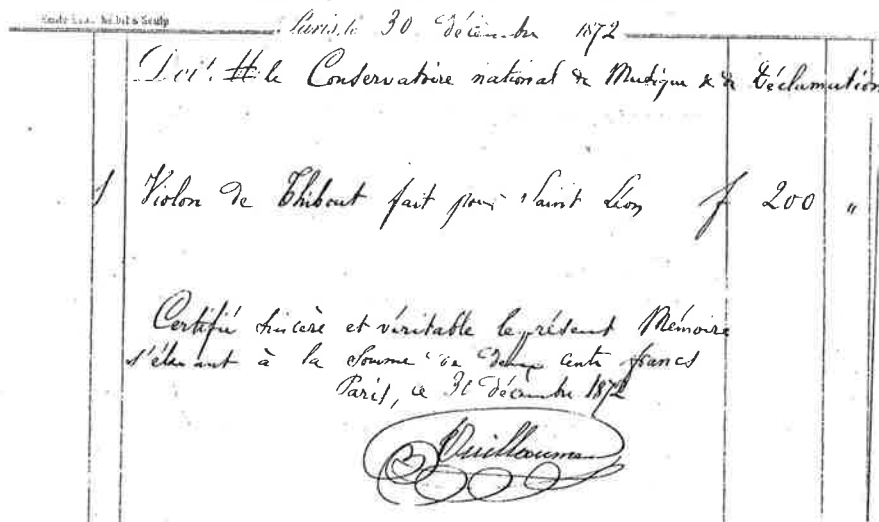 Paris, le 30 décembre 1872
Doit # le Conservatoire national de Musique & de Déclamation
1 Violon de Thibout fait pour Saint Léon f 200 "
Certifié sincère et véritable le présent Mémoire
s'élevant à la Somme de deux cents francs
Paris, ce 30 décembre 1872
Vuillaume